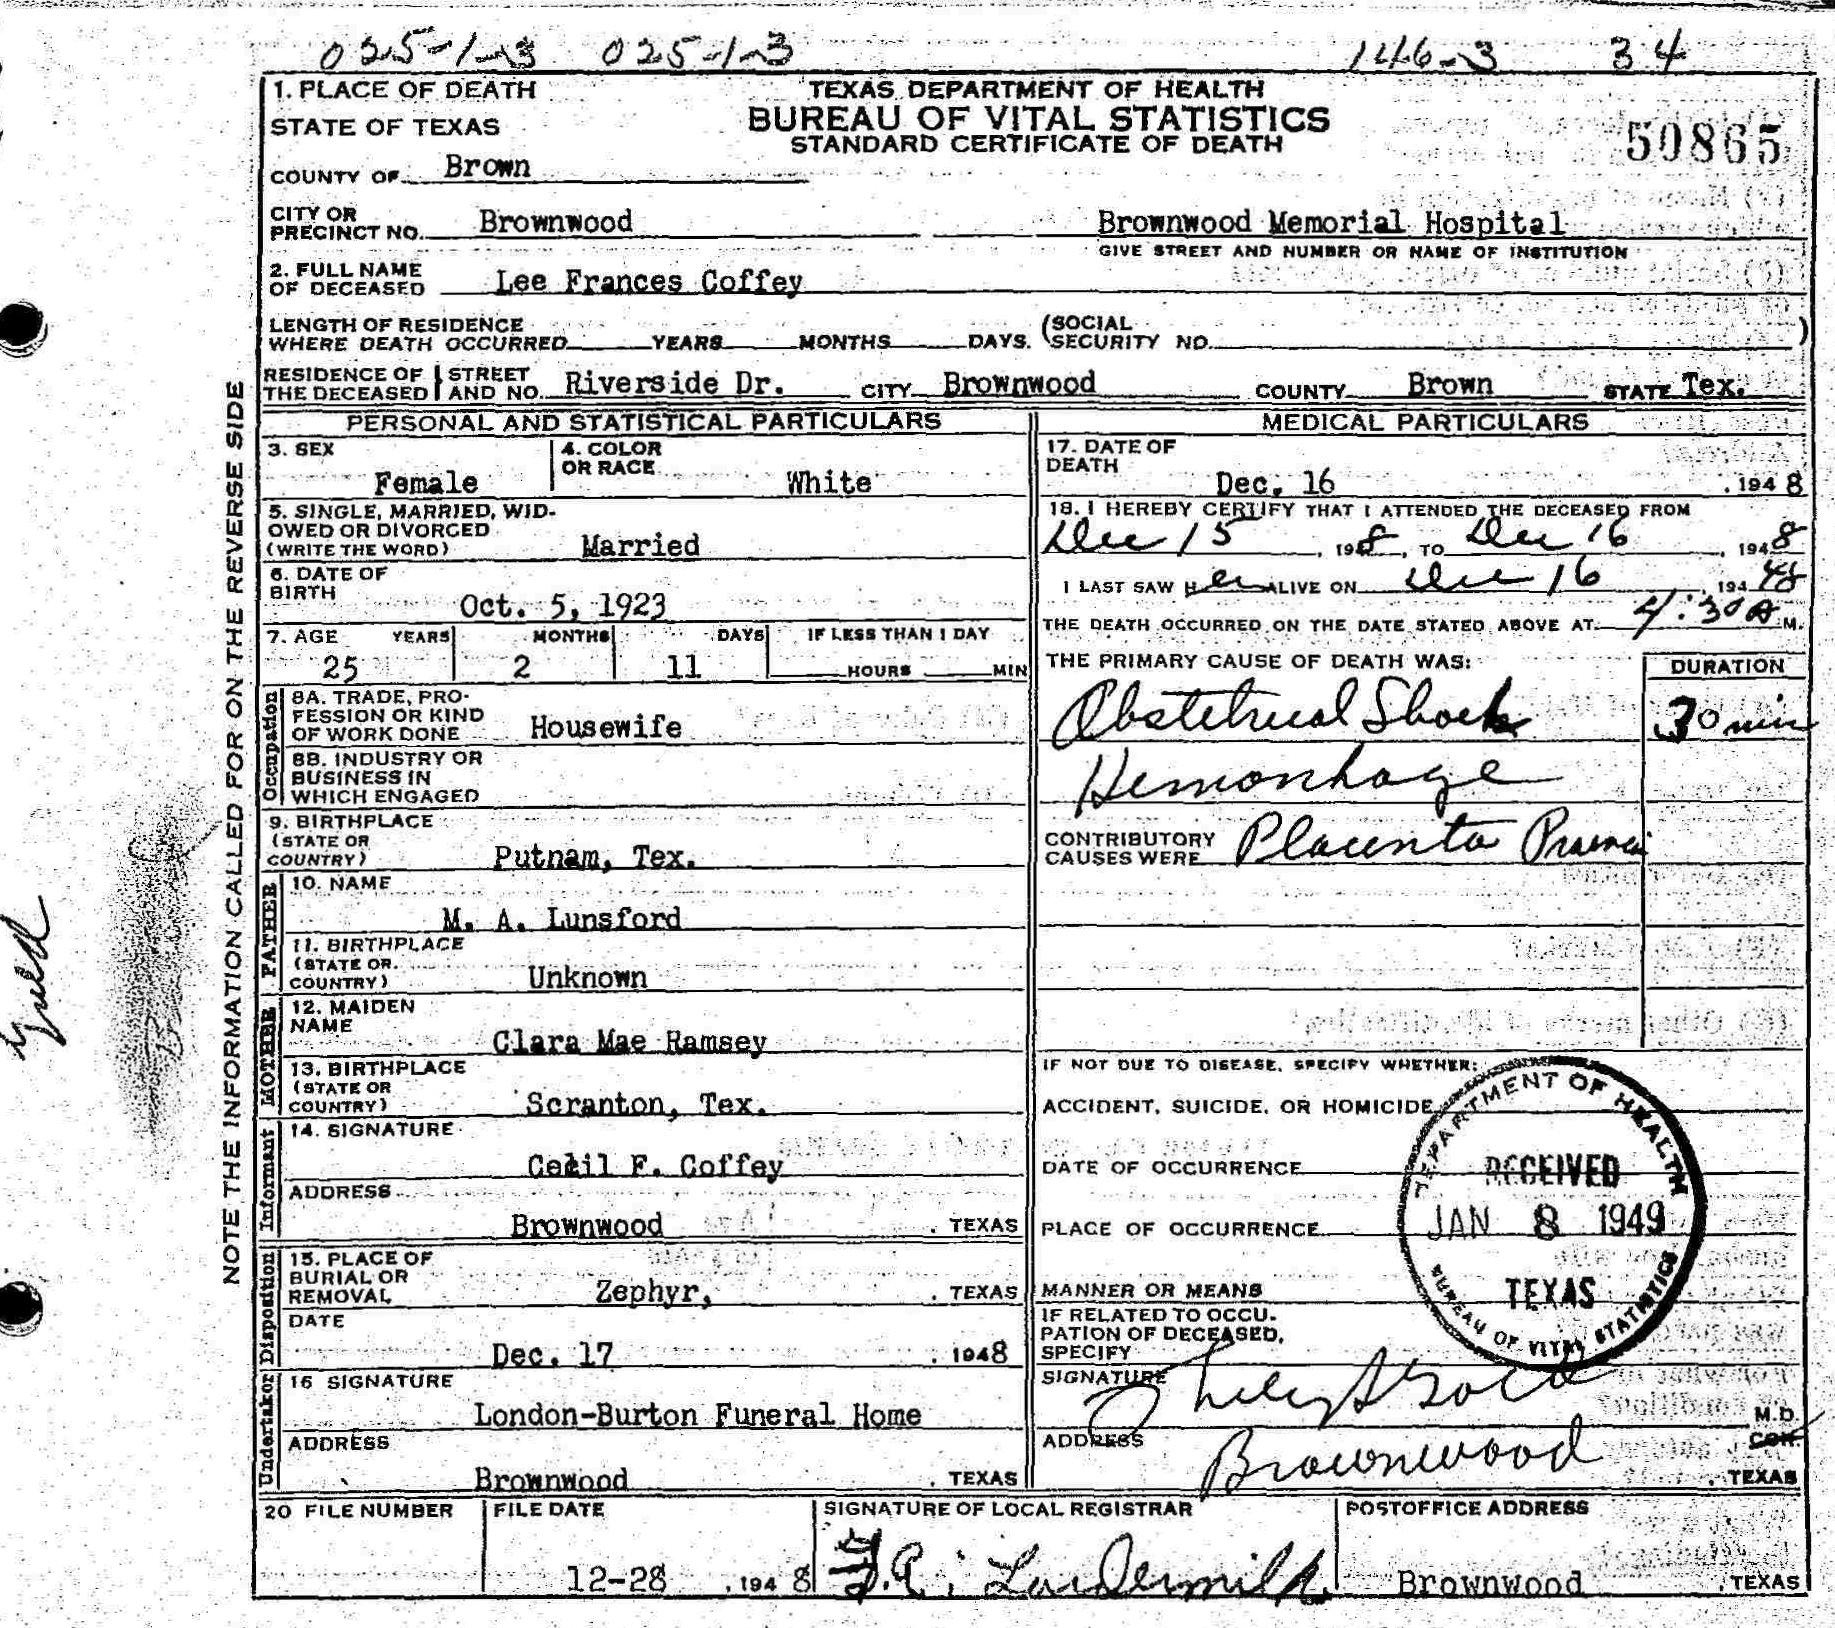 025-1-3 025-1-3 146-3 34
1. PLACE OF DEATH
STATE OF TEXAS
COUNTY OF Brown
TEXAS DEPARTMENT OF HEALTH
BUREAU OF VITAL STATISTICS
STANDARD CERTIFICATE OF DEATH
50865
CITY OR
PRECINCT NO. Brownwood
Brownwood Memorial Hospital
GIVE STREET AND NUMBER OR NAME OF INSTITUTION
2. FULL NAME
OF DECEASED Lee Frances Coffey
LENGTH OF RESIDENCE
WHERE DEATH OCCURRED YEARS MONTHS DAYS. (SOCIAL
SECURITY NO. )
RESIDENCE OF
THE DECEASED STREET
AND NO. Riverside Dr. CITY Brownwood COUNTY Brown STATE Tex.
PERSONAL AND STATISTICAL PARTICULARS
3. SEX
Female
4. COLOR
OR RACE
White
5. SINGLE, MARRIED, WID-
OWED OR DIVORCED
(WRITE THE WORD) Married
6. DATE OF
BIRTH
Oct. 5, 1923
7. AGE YEARS MONTHS DAYS IF LESS THAN 1 DAY
25 2 11 HOURS MIN
Occupation
8A. TRADE, PRO-
FESSION OR KIND
OF WORK DONE Housewife
8B. INDUSTRY OR
BUSINESS IN
WHICH ENGAGED
9. BIRTHPLACE
(STATE OR
COUNTRY) Putnam, Tex.
FATHER
10. NAME
M. A. Lunsford
11. BIRTHPLACE
(STATE OR
COUNTRY) Unknown
MOTHER
12. MAIDEN
NAME
Clara Mae Ramsey
13. BIRTHPLACE
(STATE OR
COUNTRY) Scranton, Tex.
Informant
14. SIGNATURE
Cecil F. Coffey
ADDRESS
Brownwood . TEXAS
Disposition
15. PLACE OF
BURIAL OR
REMOVAL Zephyr, . TEXAS
DATE
Dec. 17 . 1948
Undertaker
16 SIGNATURE
London-Burton Funeral Home
ADDRESS
Brownwood . TEXAS
MEDICAL PARTICULARS
17. DATE OF
DEATH
Dec. 16 . 1948
18. I HEREBY CERTIFY THAT I ATTENDED THE DECEASED FROM
Dec 15 , 1948, TO Dec 16 , 1948
I LAST SAW Her ALIVE ON Dec 16 194 48
THE DEATH OCCURRED ON THE DATE STATED ABOVE AT 4:30 A M.
THE PRIMARY CAUSE OF DEATH WAS: DURATION
Obstetrical Shock 30 min
Hemorrhage
CONTRIBUTORY
CAUSES WERE Placenta
IF NOT DUE TO DISEASE, SPECIFY WHETHER:
ACCIDENT, SUICIDE, OR HOMICIDE
DATE OF OCCURRENCE
PLACE OF OCCURRENCE
MANNER OR MEANS
IF RELATED TO OCCU-
PATION OF DECEASED,
SPECIFY
DEPARTMENT OF HEALTH
RECEIVED
JAN 8 1949
TEXAS
BUREAU OF VITAL STATISTICS
SIGNATURE
M.D.
COR.
ADDRESS Brownwood . TEXAS
20 FILE NUMBER
FILE DATE
12-28 , 1948
SIGNATURE OF LOCAL REGISTRAR
POSTOFFICE ADDRESS
Brownwood , TEXAS
NOTE THE INFORMATION CALLED FOR ON THE REVERSE SIDE